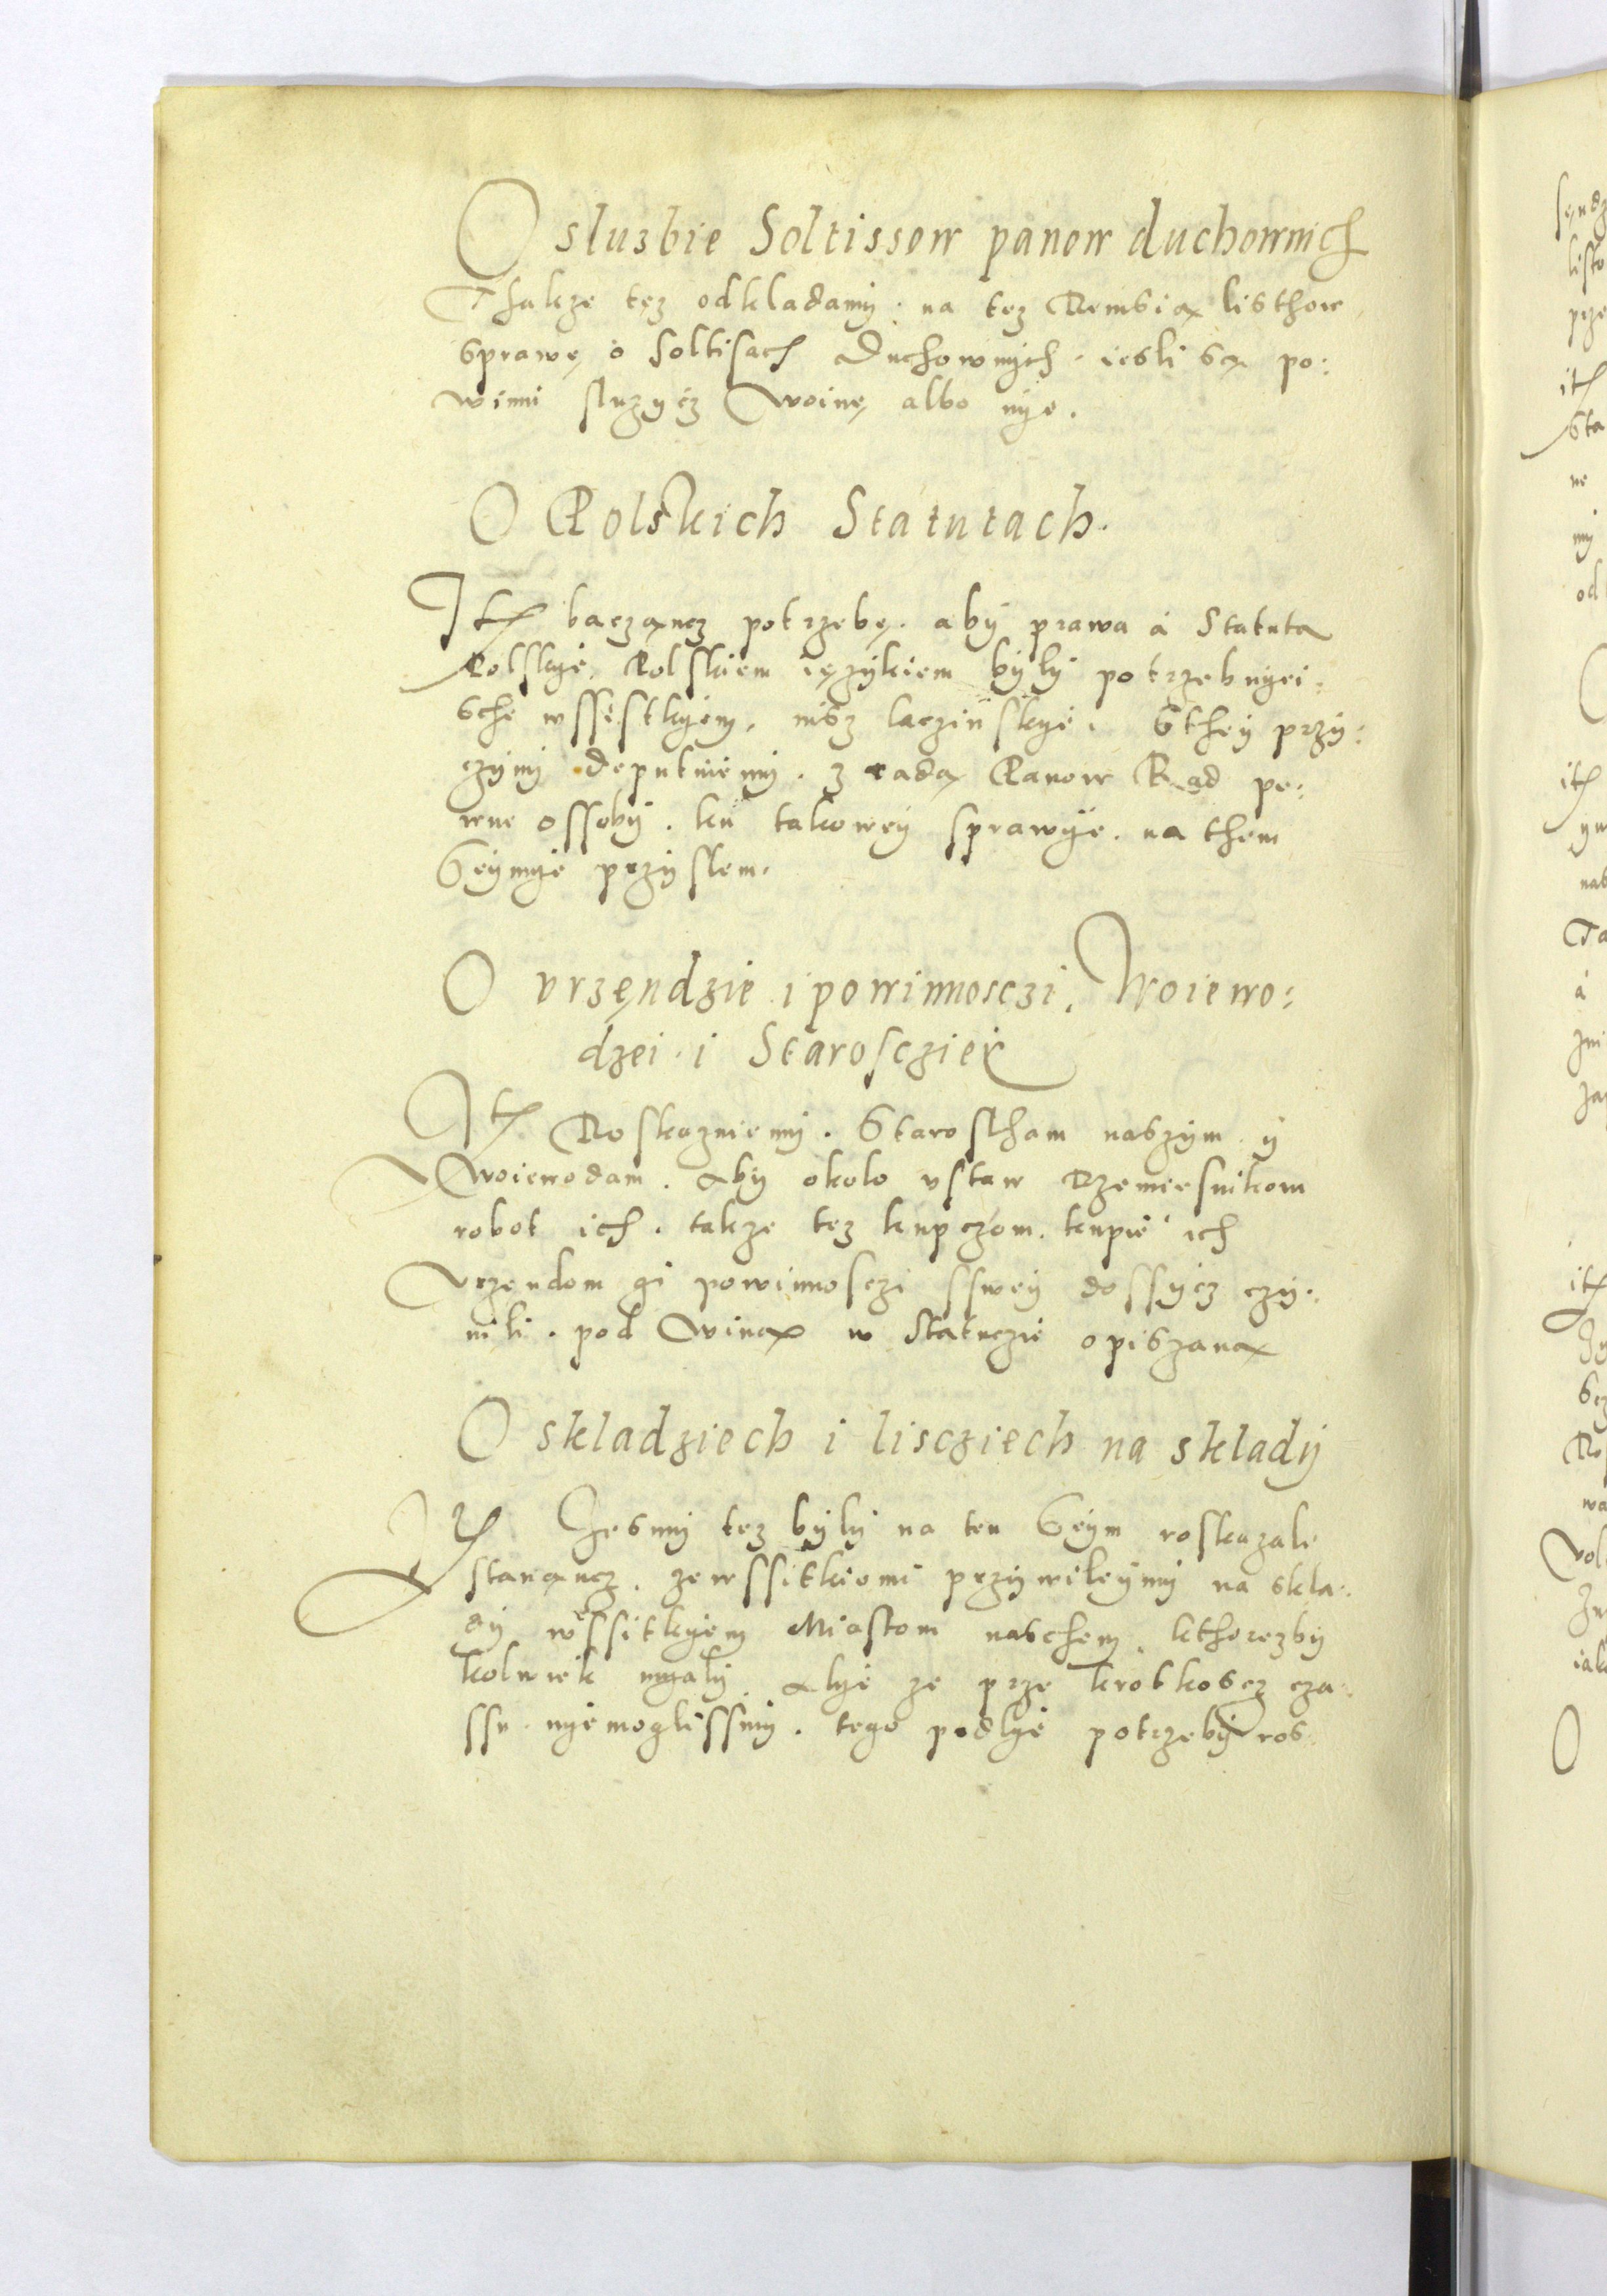 O sluzbie Soltissow panow duchownich
Thakze tez odkladamÿ . na tez Remsią listhow
sprawę o soltisach Duchownÿch . iesli są po:
winni sluzycz Woinę albo nÿe .
O Polskich Statutach .
Itē baczącz potrzebę . abÿ prawa á Statuta
Polskÿe Polskiem ięzÿkiem bÿlÿ potrzebnÿei:
sche wssÿstkÿem . nisz laczinskÿe . Sthÿ przÿ:
czÿnÿ deputuiemÿ . z radą Panow Rad pe:
wne ossobÿ . ku takowey sprawÿe . na them
Seÿmÿe przÿslem .
O vrzęndzie i powinnosczi . Woiewo:
dzei . i Staroscziei
Itē Roskazuiemÿ . Starostham naszÿm ÿ
Woiewodam . Abÿ okolo vstaw Rzemiesnikom
robot ich . takze tez kupczom . kupie ich
Vrzendom gi powinnosczi sswey dossÿcz czÿ:
nili . pod Winą w Statuczie opiszaną
O skladziech i lisczieth na skladÿ
Itē Zesmÿ tez bÿlÿ na ten Seÿm roskazali
stanącz . zewssitkiemi przÿwileÿmÿ na skla:
dÿ wssitkÿem Miastom naschem . kthorezbÿ
kolwiek mÿalÿ . Alÿe ze prze krotkoscz cza:
ssu . nÿemoglissmÿ . tego podlÿe potrzebÿ ros